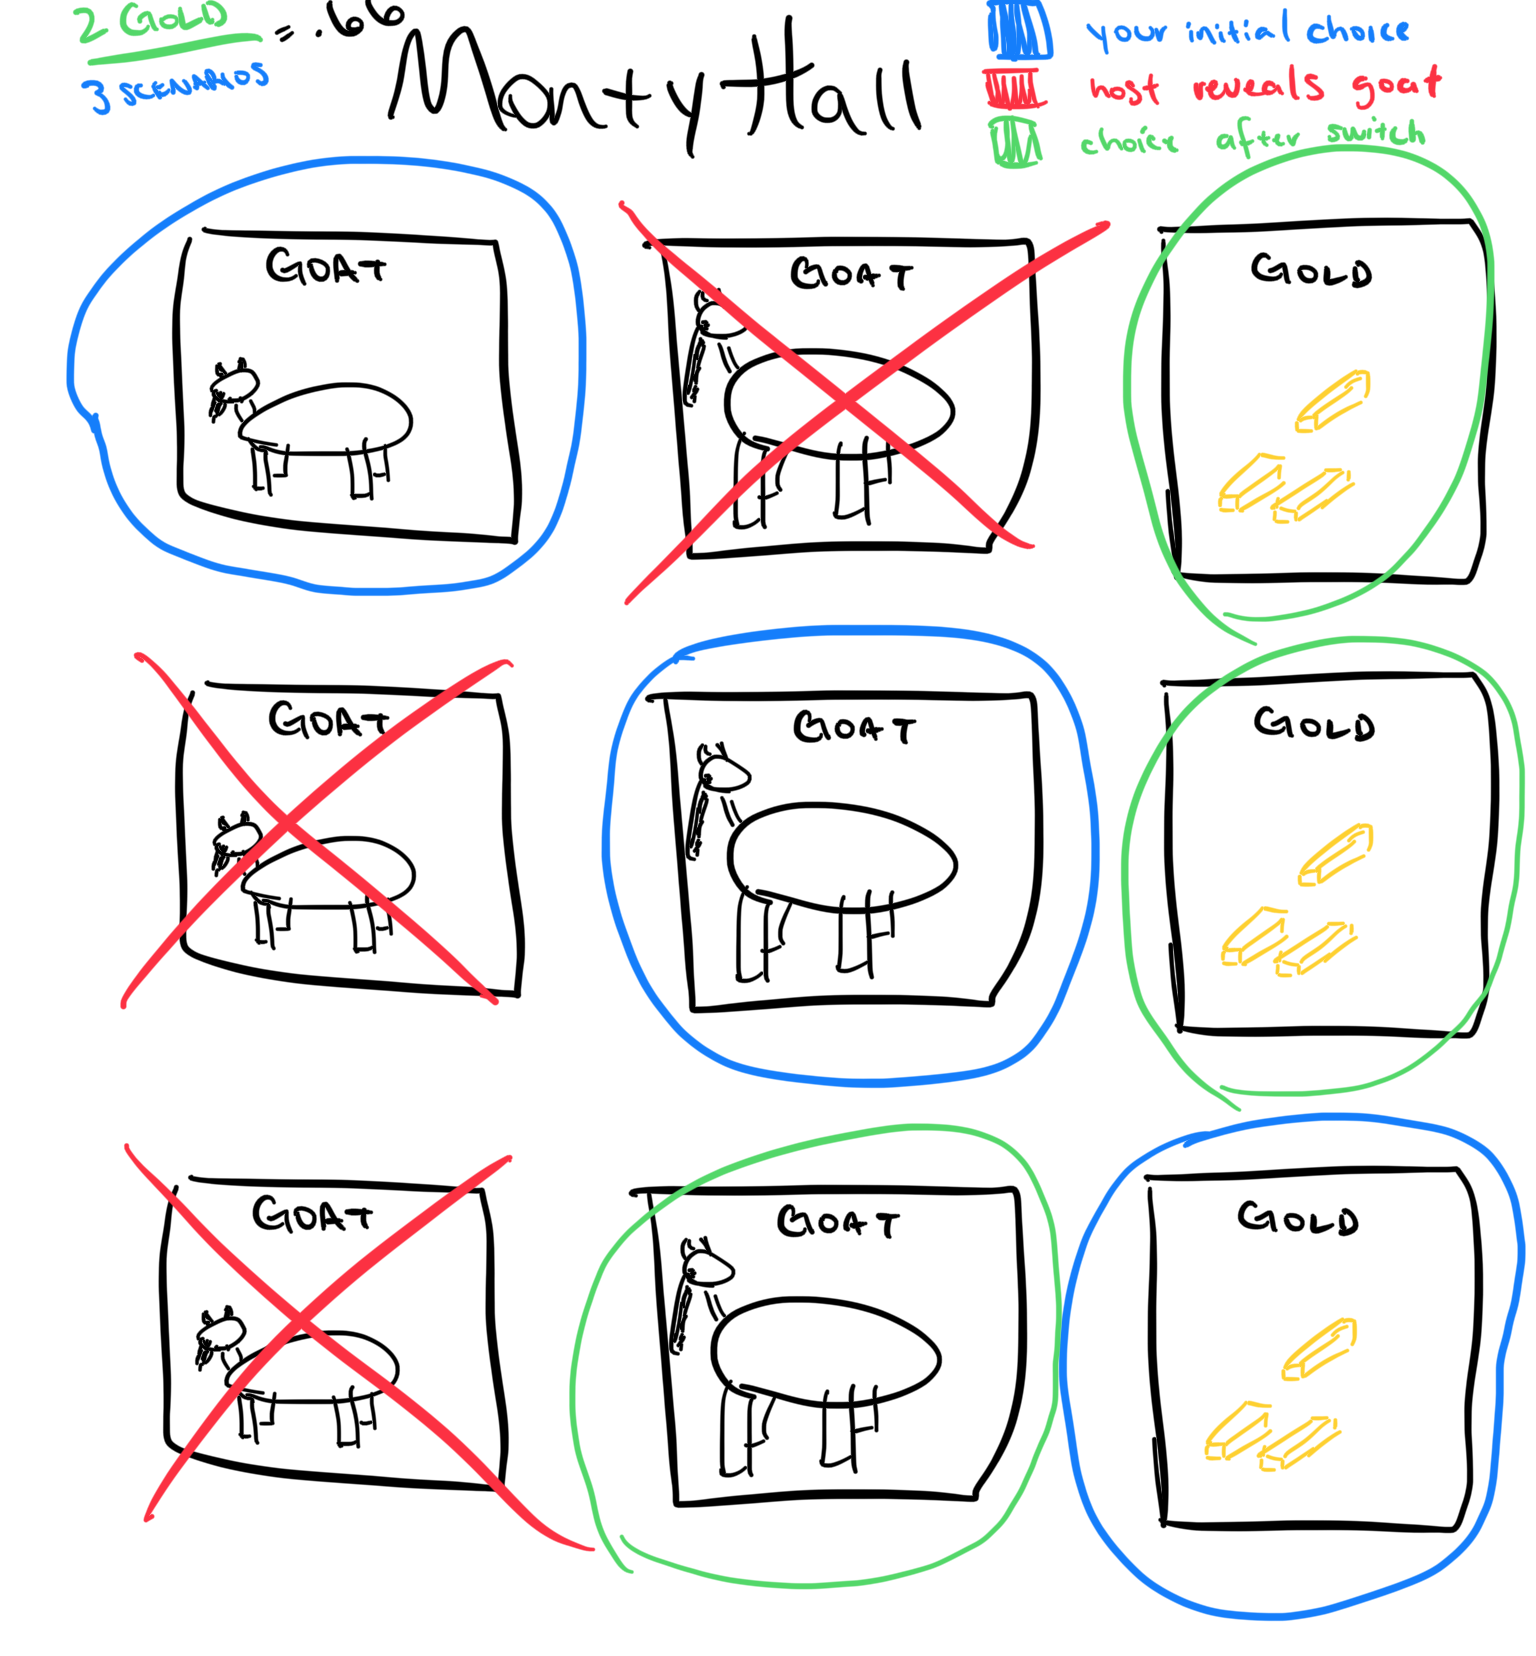 2 GOLD
3 SCENARIOS
= .66
Monty Hall
your initial choice
host reveals goat
choice after switch
GOAT
GOAT
GOLD
GOAT
GOAT
GOLD
GOAT
GOAT
GOLD